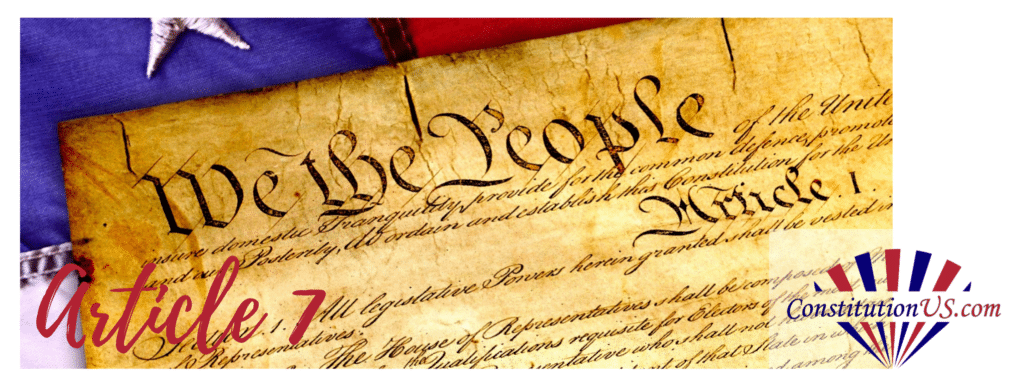 We the People
of the Unite
insure domestic Tranquility, provide for the common defence, promote
and our Posterity, do ordain and establish this Constitution for the Un
Article. I.
Section. 1. All legislative Powers herein granted shall be vested in
of Representatives.
The House of Representatives shall be composed of
Qualifications requisite for Electors of the most
Representative who shall not ha
of that State in
among the
Article 7
ConstitutionUS.com